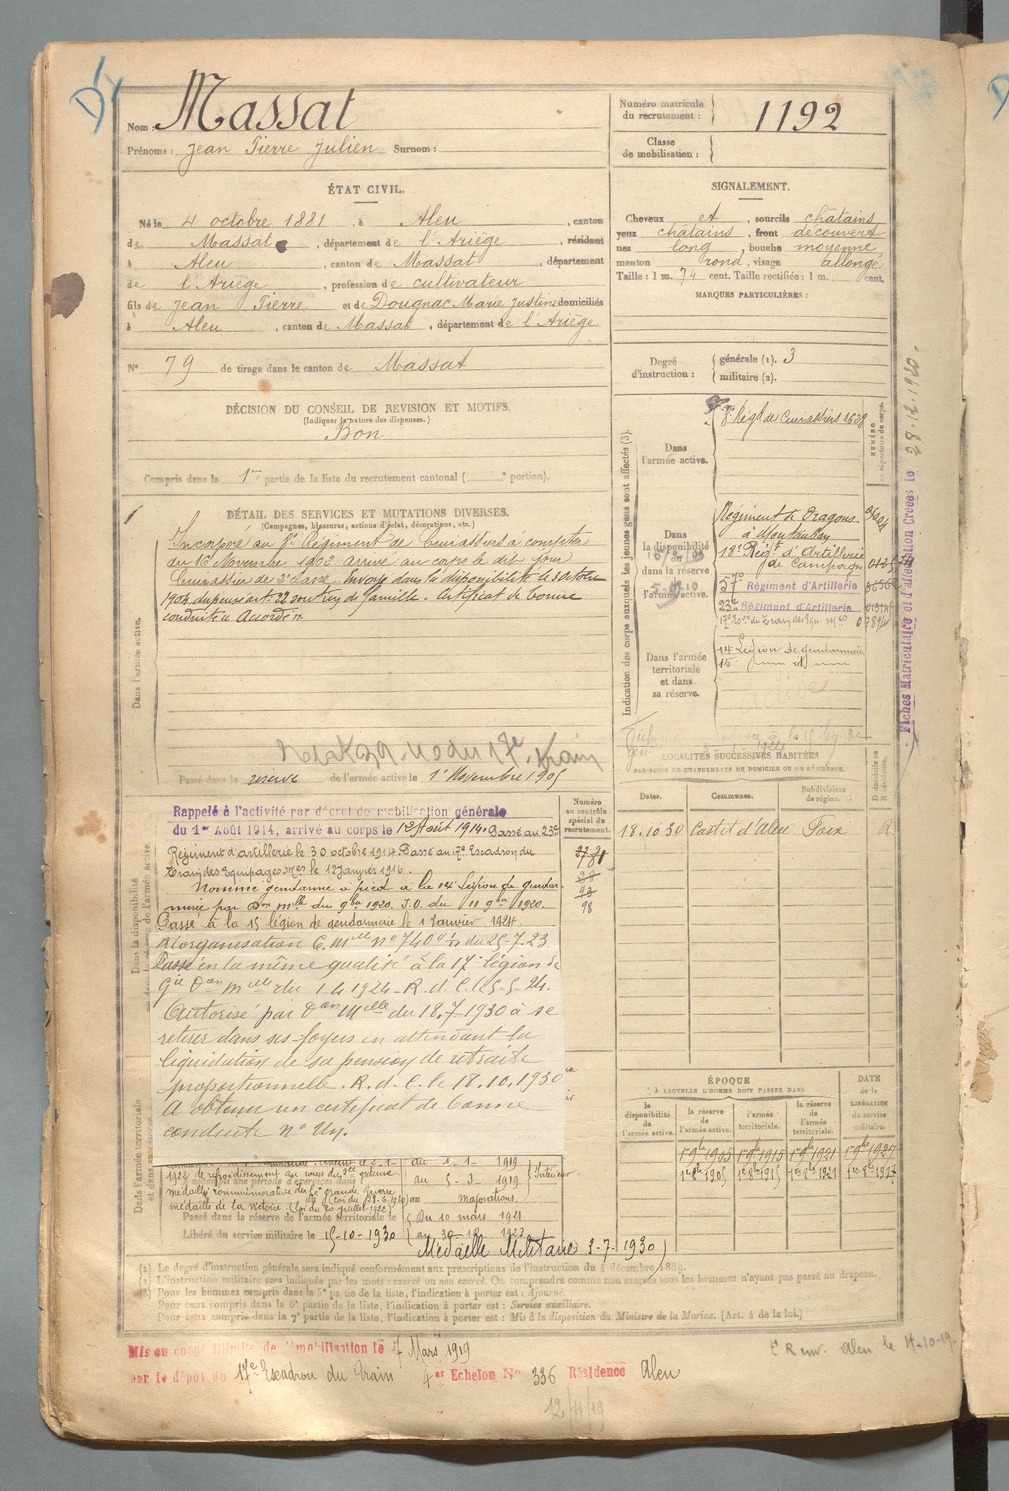 Nom : Massat
Prénoms : Jean Pierre Julien Surnom :
Numéro matricule du recrutement : 1192
Classe de mobilisation :
ÉTAT CIVIL.
Né le 4 octobre 1881, à Aleu, canton
de Massat, département de l'Ariège, résidant
à Aleu, canton de Massat, département
de l'Ariège, profession de cultivateur
fils de Jean Pierre et de Dougnac Marie Justine domiciliés
à Aleu, canton de Massat, département de l'Ariège
N° 79 de tirage dans le canton de Massat
SIGNALEMENT.
Cheveux et, sourcils châtains
yeux châtains, front découvert
nez long, bouche moyenne
menton rond, visage allongé
Taille : 1 m. 74 cent. Taille rectifiée : 1 m. cent.
MARQUES PARTICULIÈRES :
Degré d'instruction : générale (1). 3
militaire (2).
DÉCISION DU CONSEIL DE REVISION ET MOTIFS.
(Indiquer la nature des dispenses.)
Bon
Compris dans la 1re partie de la liste du recrutement cantonal ( e portion).
DÉTAIL DES SERVICES ET MUTATIONS DIVERSES.
(Campagnes, blessures, actions d'éclat, décorations, etc.)
Dans l'armée active.
Incorporé au 8e Régiment de Cuirassiers à compter
du 16 Novembre 1902 arrivé au corps le dit jour
Cuirassier de 2e classe. Envoyé dans la disponibilité le 3 octobre
1904, dispensé art. 22 soutien de famille. Certificat de bonne
conduite Accordé
Passé dans la réserve de l'armée active le 1er Novembre 1905
Indication des corps auxquels les jeunes gens sont affectés (3).
Dans l'armée active.
8e Régt de Cuirassiers
NUMÉRO
Dans la disponibilité ou dans la réserve de l'armée active.
Régiment de Dragons
à Montauban
18e Régt d'Artillerie
de Campagne
57e Régiment d'Artillerie
23e Régiment d'Artillerie
Dans l'armée territoriale et dans sa réserve.
14 Légion de gendarmerie
15
Fiches Matriculaire et d'affectation Créées le 28-12-1920.
LOCALITÉS SUCCESSIVES HABITÉES
PAR SUITE DE CHANGEMENTS DE DOMICILE OU DE RÉSIDENCE.
Dates. Communes. Subdivisions de région. D domicile ou R résidence.
18.10.30 Castet d'Aleu Foix R
Numéro au contrôle spécial du recrutement.
98
Rappelé à l'activité par décret de mobilisation générale
du 1er Août 1914, arrivé au corps le 12 Août 1914. Passé au 23e
Régiment d'artillerie le 30 octobre 1914. Passé au 17e Escadron du
train des Equipages Mres le 12 Janvier 1916.
Nommé gendarme à pied à la 14e Légion de gendar-
merie par Don mlle du 9 bre 1920. J.O. du 11 9bre 1920.
Passé à la 15 légion de Gendarmerie le 1 Janvier 1924
Réorganisation C. Mlle n° 740 du 25-7.23
Passé en la même qualité à la 17e légion de
Gie Don mlle du 1.4.1924. R.d.C. le 5-5-24.
Autorisé par Don Mlle du 18.7.1930 à se
retirer dans ses foyers en attendant la
liquidation de sa pension de retraite
proportionnelle. R.d.C. le 18.10.1930
A obtenu un certificat de bonne
conduite n° Un.
médaille commémorative de la grande Guerre
médaille de la Victoire (loi du 20 juillet 1922)
du 1-1-1919
au 5-3-1919
Intérieur
majorations
Passé dans la réserve de l'armée territoriale le
Du 10 mars 1921
Libéré du service militaire le 15-10-1930
Médaille Militaire 2-7-1930
ÉPOQUE
À LAQUELLE L'HOMME DOIT PASSER DANS
DATE de la LIBÉRATION du service militaire.
la disponibilité de l'armée active. la réserve de l'armée active. l'armée territoriale. la réserve de l'armée territoriale.
1er 9bre 1905 1er 9bre 1915 1er 9bre 1921 1er 9bre 1927
(1) Le degré d'instruction générale sera indiqué conformément aux prescriptions de l'instruction du 4 décembre 1889.
(2) L'instruction militaire sera indiquée par les mots : exercé ou non exercé. On comprendra comme non exercés tous les hommes n'ayant pas passé au drapeau.
(3) Pour les hommes compris dans la 5e partie de la liste, l'indication à porter est : Ajourné.
Pour ceux compris dans la 6e partie de la liste, l'indication à porter est : Service auxiliaire.
Pour ceux compris dans la 7e partie de la liste, l'indication à porter est : Mis à la disposition du Ministre de la Marine. (Art. 4 de la loi.)
Mis en congé illimité de démobilisation le 7 Mars 1919
par le dépôt du 17e Escadron du Train 4er Echelon N° 336 Résidence Aleu
12/11/19